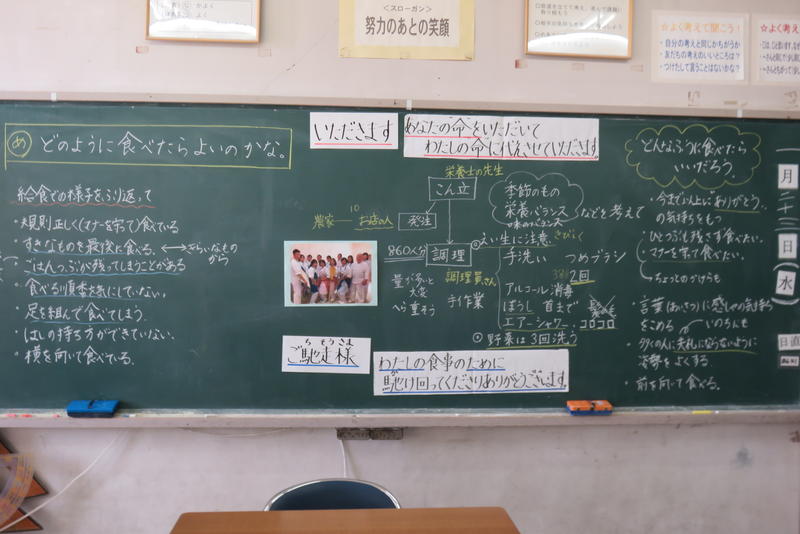 ＜スローガン＞
努力のあとの笑顔
☆よく考えて聞こう！
・自分の考えと同じかちがうか
・友だちの考えのいいところは？
・つけたして言うことはないかな？
☆よく考え
め どのように食べたらよいのかな。
給食での様子をふり返って
・規則正しく(マナーを守って)食べている
・すきなものを最後に食べる。 ⟷ きらいなものから
・ごはんつぶが残ってしまうことがある
・食べる順番気にしていない。
・足を組んで食べてしまう。
・はしの持ち方ができていない。
・横を向いて食べている。
いただきます
あなたの命をいただいて
わたしの命に代えさせていただきます。
栄養士の先生
こん立
季節のもの
栄養バランス
味のバランス
などを考えて
農家
10
お店の人
発注
860人分
調理
調理員さん
手作業
量が多いと
大変
へら重そう
えい生に注意
手洗い つめブラシ
2回
アルコール消毒
ぼうし 首まで
エアーシャワー コロコロ
野菜は3回洗う
ちそうさま
ご馳走様
わたしの食事のために
馳け回ってくださりありがとうございます。
どんなふうに食べたら
いいだろう。
・今まで以上にありがとう
の気持ちをもつ
・ひとつも残さず食べたい。
・マナーを守って食べたい。
ちょっとのかけらも
・言葉(あいさつ)に感しゃの気持ち
をこめる いのちにも
・多くの人に失礼にならないように
姿勢をよくする。
・前を向いて食べる。
月
日
(水)
日直